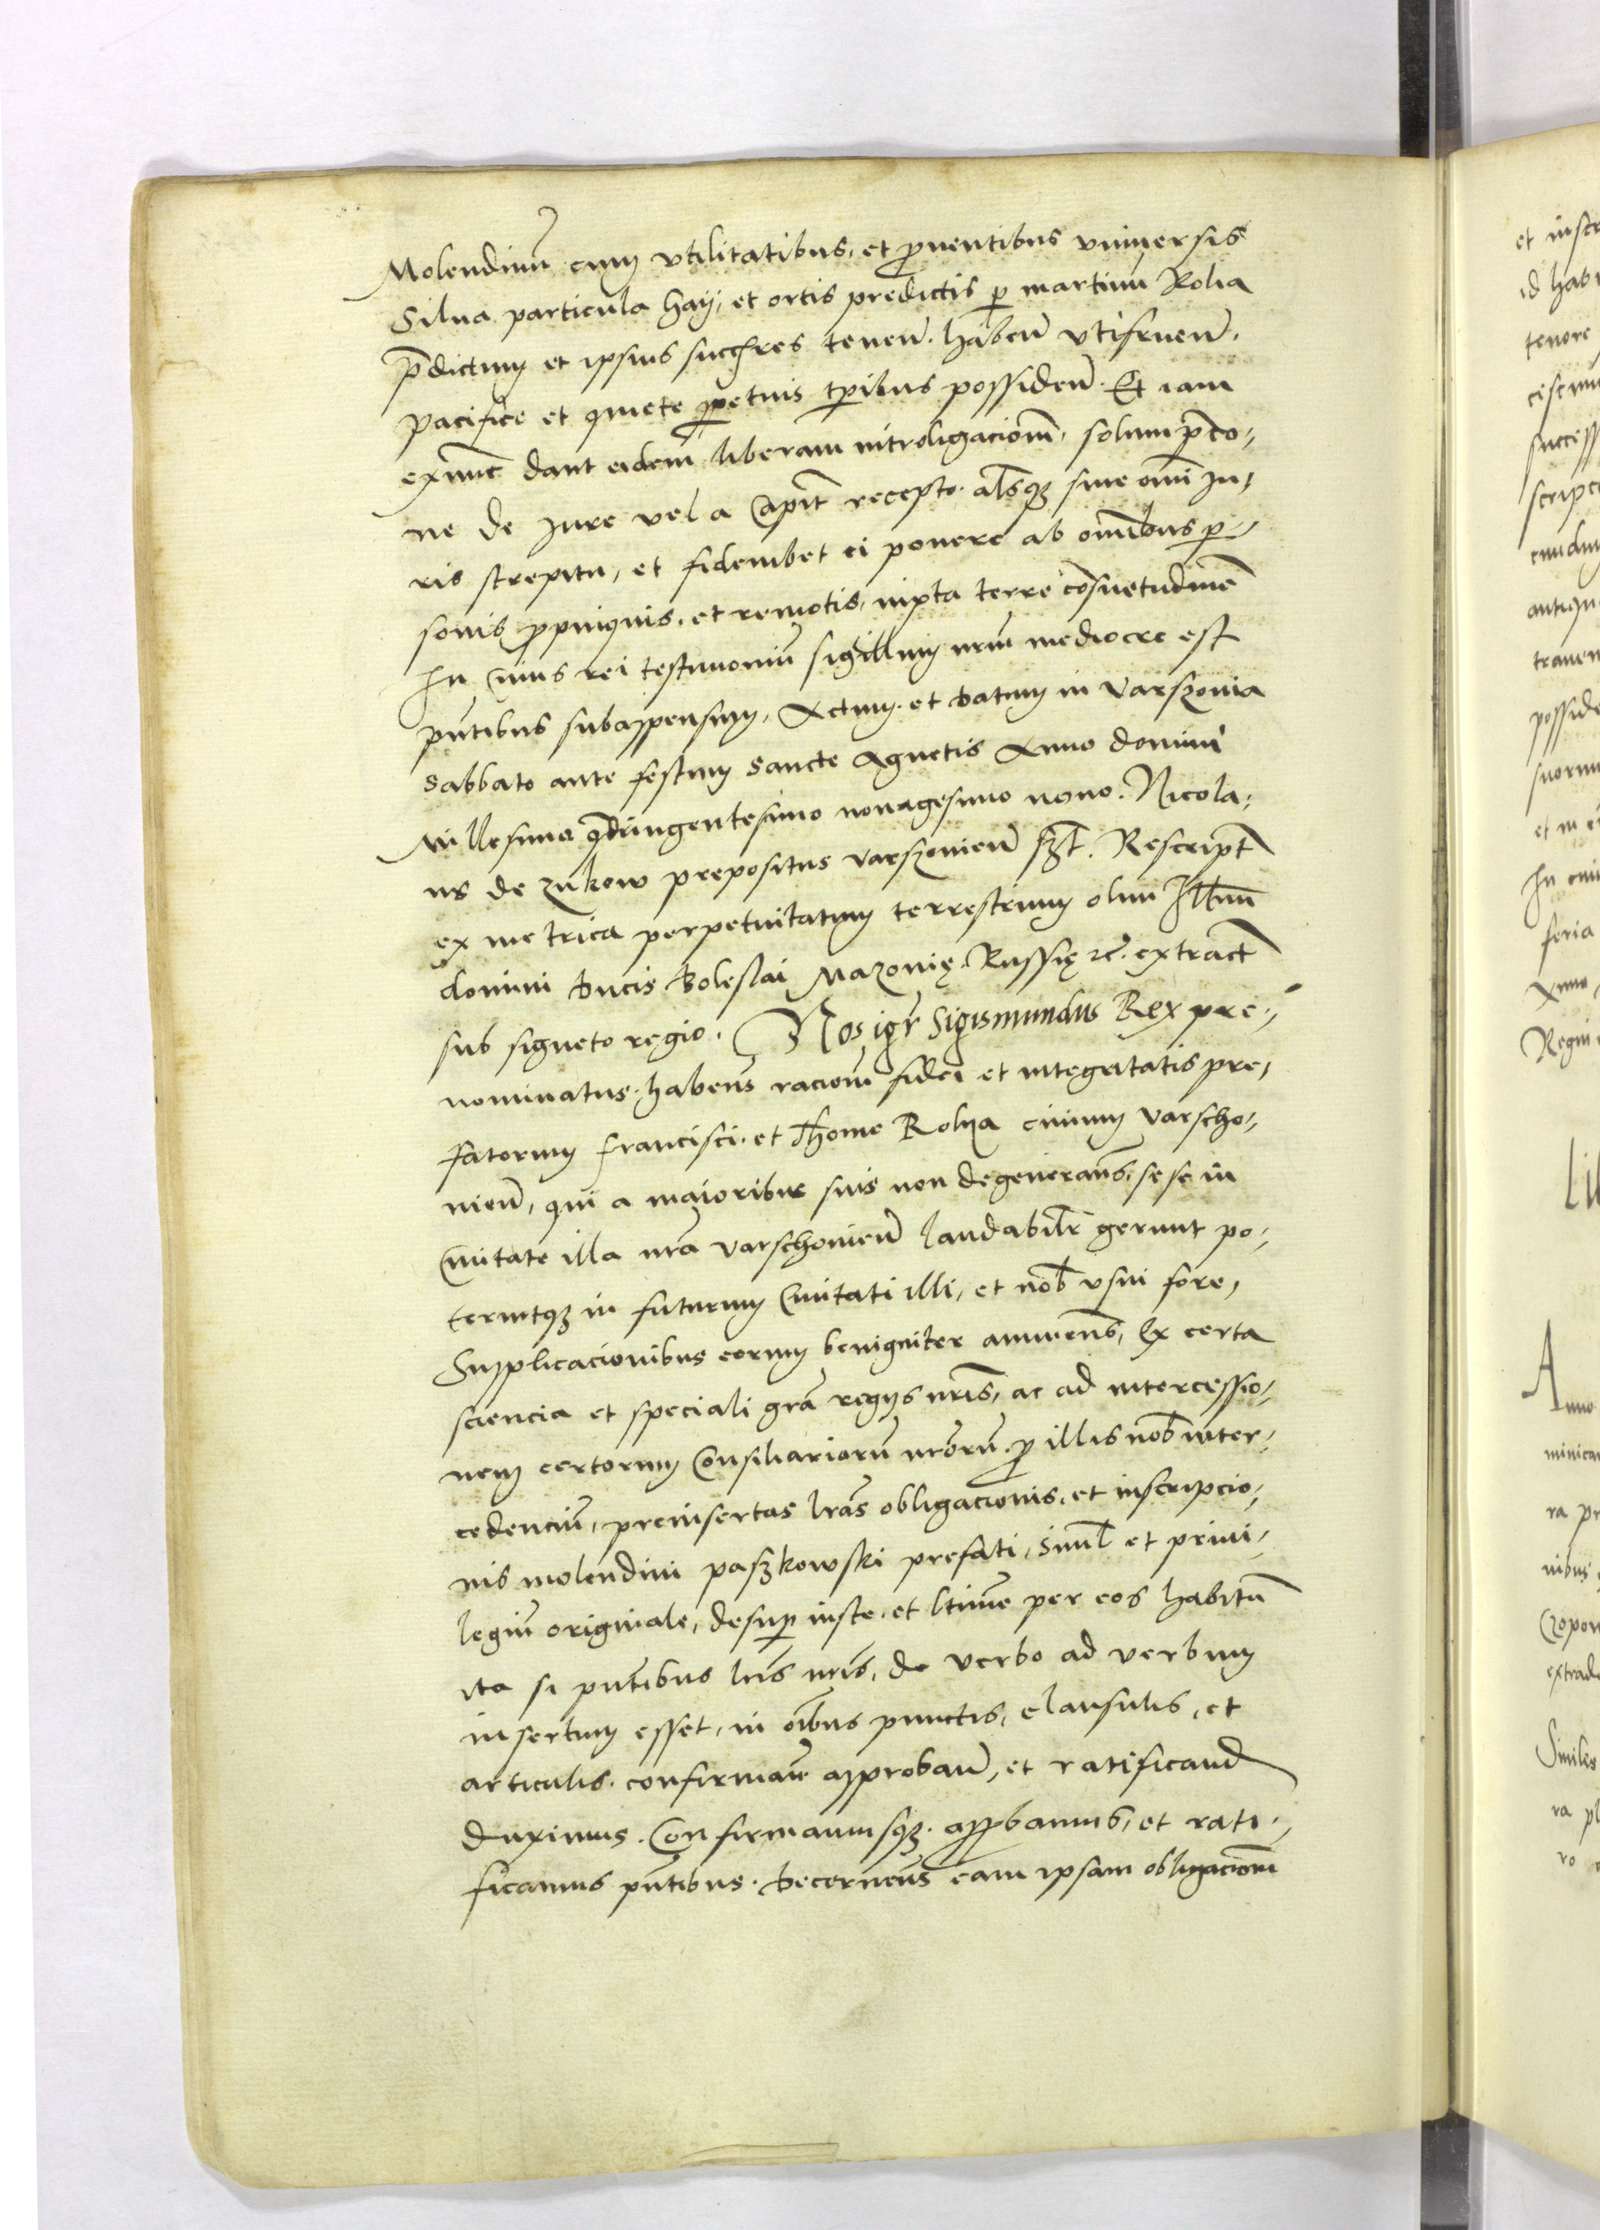 Molendinũ cum vtilitatibus, et ꝓuentibus vniuersis
Silua particula haÿ, et ortis predictis ꝑ martinũ Rolia
p̃dictum et ipsius succẽres tenen̄. haben̄ vtifruen̄.
pacifice et quiete ꝑpetuis tꝑibus possiden̄. Et iam
exnunc dant eidem liberam introligacionẽ, solum p̃co-
ne de Jure vel a Capit̃ recepto. alsq3 siue om̃i Ju-
ris strepitu, et fideiubet ei ponere ab om̃ibus ꝑ-
sonis ꝓpinquis, et remotis, iuxta terre cõsuetudinẽ
In Cuius rei testimoniũ sigillum nr̃m mediocre est
pñtibus subappensum, Actum et datum in Varszouia
Sabbato ante festum Sancte Agnetis Anno domini
Millesimo q̃dringentesimo nonagesimo nono. Nicola-
us de Zukow prepositus varszouien̄ sszt. Rescript̃
ex metrica perpetuitatum terrestrium olim Illm̃i
domini ducis Boleslai Mazouię. Russię rc̃. extract̃
sub signeto regio. Nos igr̃ Sigismundus Rex pre-
nominatus. habens racionẽ fidei et integritatis pre-
fatorum francisci. et Thome Rolya ciuium Varscho-
uien̄, qui a maioribus suis non degenerañs, se se in
Ciuitate illa nr̃a varschouien̄ laudabilr̃ gerunt po-
teruntq3 in futurum Ciuitati illi, et nob̃ vsui fore,
Supplicacionibus eorum benigniter annueñs, Ex certa
sciencia et speciali grã regijs nr̃is, ac ad intercessio-
nem certorum Consiliariorũ nr̃orũ ꝓ illis nob̃ inter-
cedenciũ, preinsertas lr̃as obligacionis, et inscripcio-
nis molendini paszkowski prefati, siml̃ et priui-
legiũ originale, desuꝑ iuste. et ltime per eos habitũ
ita si pñtibus lr̃is nr̃is, de verbo ad verbum
insertum esset, in oĩbus punctis, clausulis, et
articulis. confirman̄ approban̄, et ratificand
duximus. Confirmamusq3. apꝓbamus, et rati-
ficamus pñtibus. decerneñs eam ipsam obligacionẽ